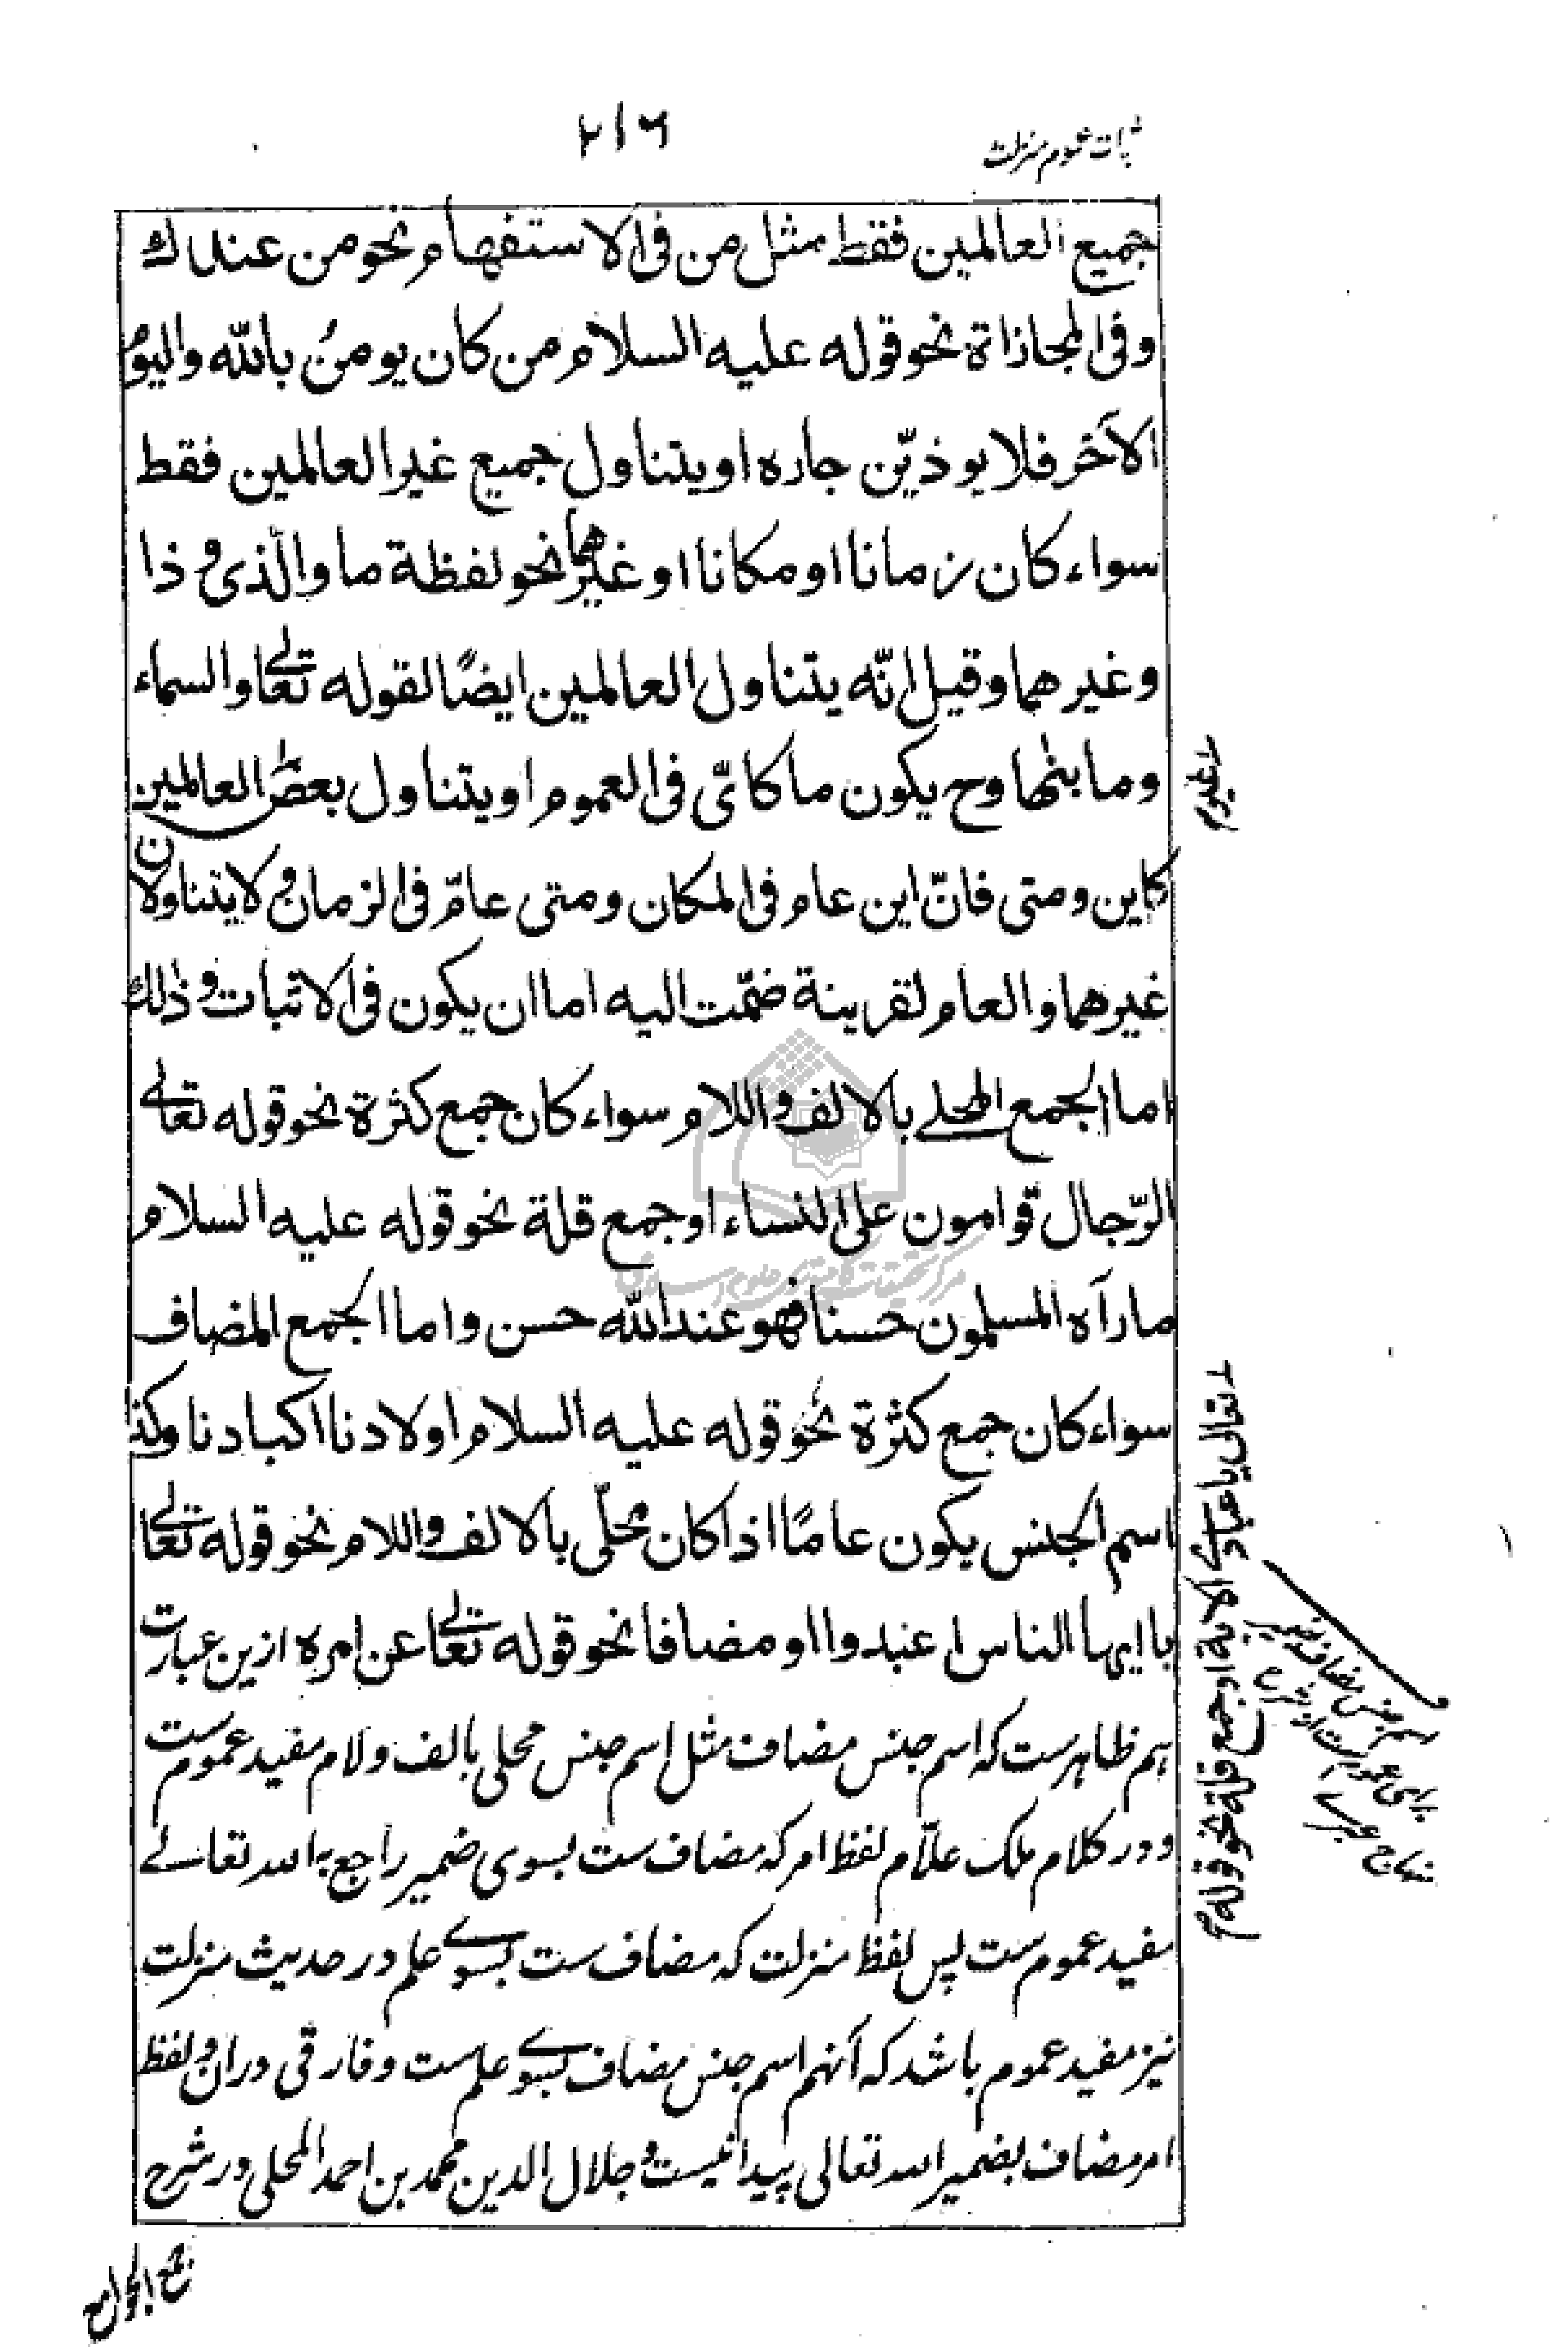 اثبات عموم منزلت
۲۱۶
جميع العالمين فقط مثل من فى الاستفهام نحو من عندك
وفى المجازاة نحو قوله عليه السلام من كان يومن بالله واليوم
الآخر فلا يوذيّن جاره او يتناول جميع غير العالمين فقط
سواء كان زمانا او مكانا او غيرهما نحو لفظة ما والّذى و ذا
وغيرهما وقيل انّه يتناول العالمين ايضًا لقوله تعالى والسماء
وما بنٰها وح يكون ما كاىّ فى العموم او يتناول بعض العالمين
كاين ومتى فانّ اين عام فى المكان ومتى عامّ فى الزمان و لا يتناولان
غيرهما والعام لقرينة ضمّت اليه اما ان يكون فى الاثبات و ذلك
اما الجمع المحلى بالالف واللام سواء كان جمع كثرة نحو قوله تعالى
الرّجال قوّامون على النساء او جمع قلة نحو قوله عليه السلام
ما رآه المسلمون حسنا فهو عند الله حسن واما الجمع المضاف
سواء كان جمع كثرة نحو قوله عليه السلام اولادنا اكبادنا وكذا
اسم الجنس يكون عامًا اذا كان محلّى بالالف واللام نحو قوله تعالى
يا ايها الناس اعبدوا او مضافا نحو قوله تعالى عن امره ازين عبارت
هم ظاهرست كه اسم جنس مضاف مثل اسم جنس محلى بالف ولام مفيد عموم ست
و در كلام ملك علّام لفظ امر كه مضاف ست بسوى ضمير راجع به الله تعالے
مفيد عموم ست پس لفظ منزلت كه مضاف ست بسوے علم در حديث منزلت
نيز مفيد عموم باشد كه آنهم اسم جنس مضاف بسوے علم ست و فارقى دران و لفظ
امر مضاف بضمير الله تعالى پيدا نيست و جلال الدين محمد بن احمد المحلى در شرح
جمع الجوامع
او جمع قلة نحو قوله
اسم جنس مضاف بضمير
براى عموم ست